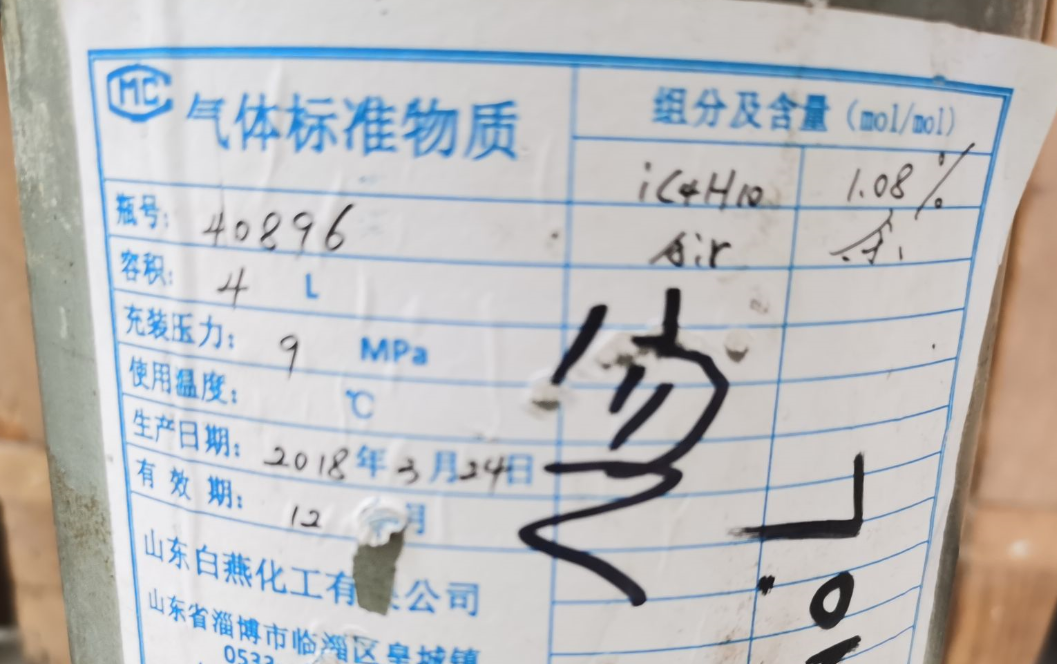 MC
气体标准物质
组分及含量(mol/mol)
iC4H10 1.08%
Air 余.
瓶号: 40896
容积: 4 L
充装压力: 9 MPa
使用温度: ℃
生产日期: 2018年3月24日
有效期: 12 月
山东白燕化工有 公司
山东省淄博市临淄区皇城镇
0533